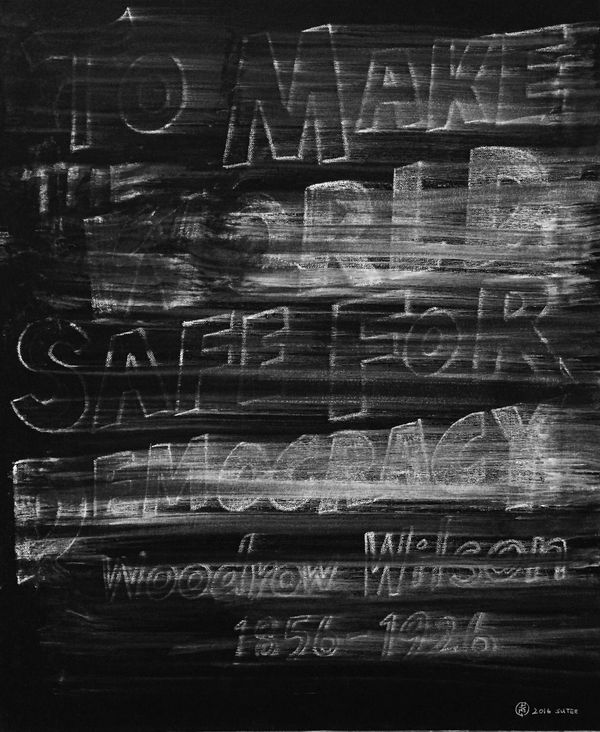 TO MAKE
THE WORLD
SAFE FOR
DEMOCRACY
Woodrow Wilson
1856-1926
2016 SUTEE